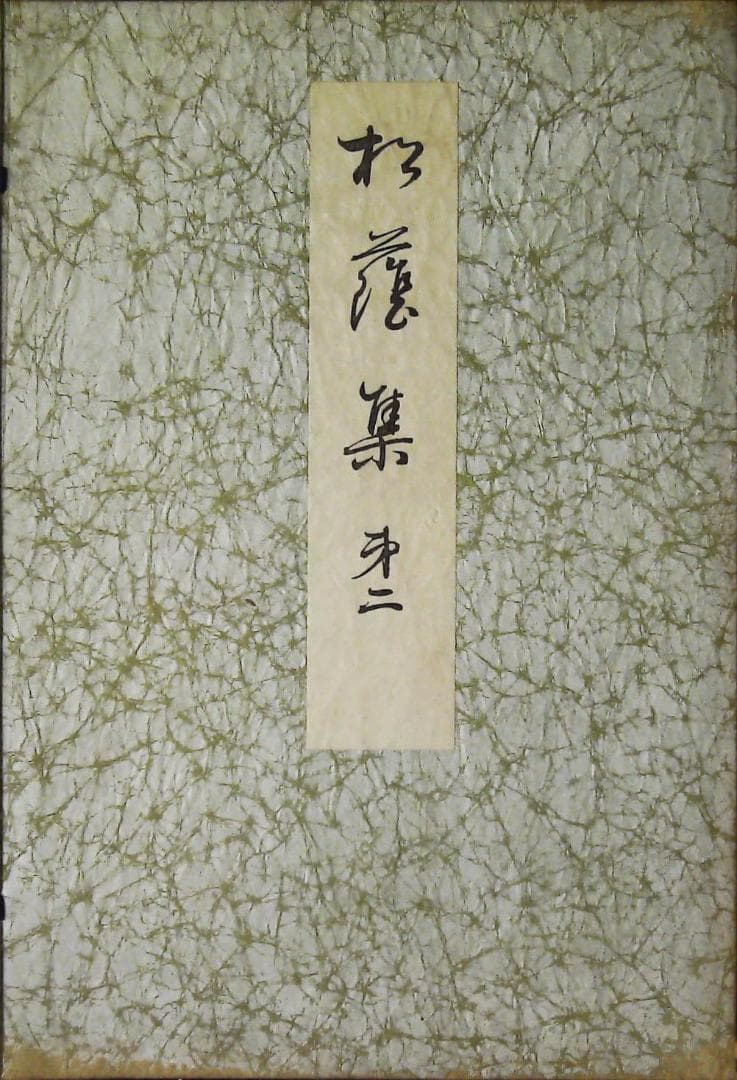 松蔭集 第二